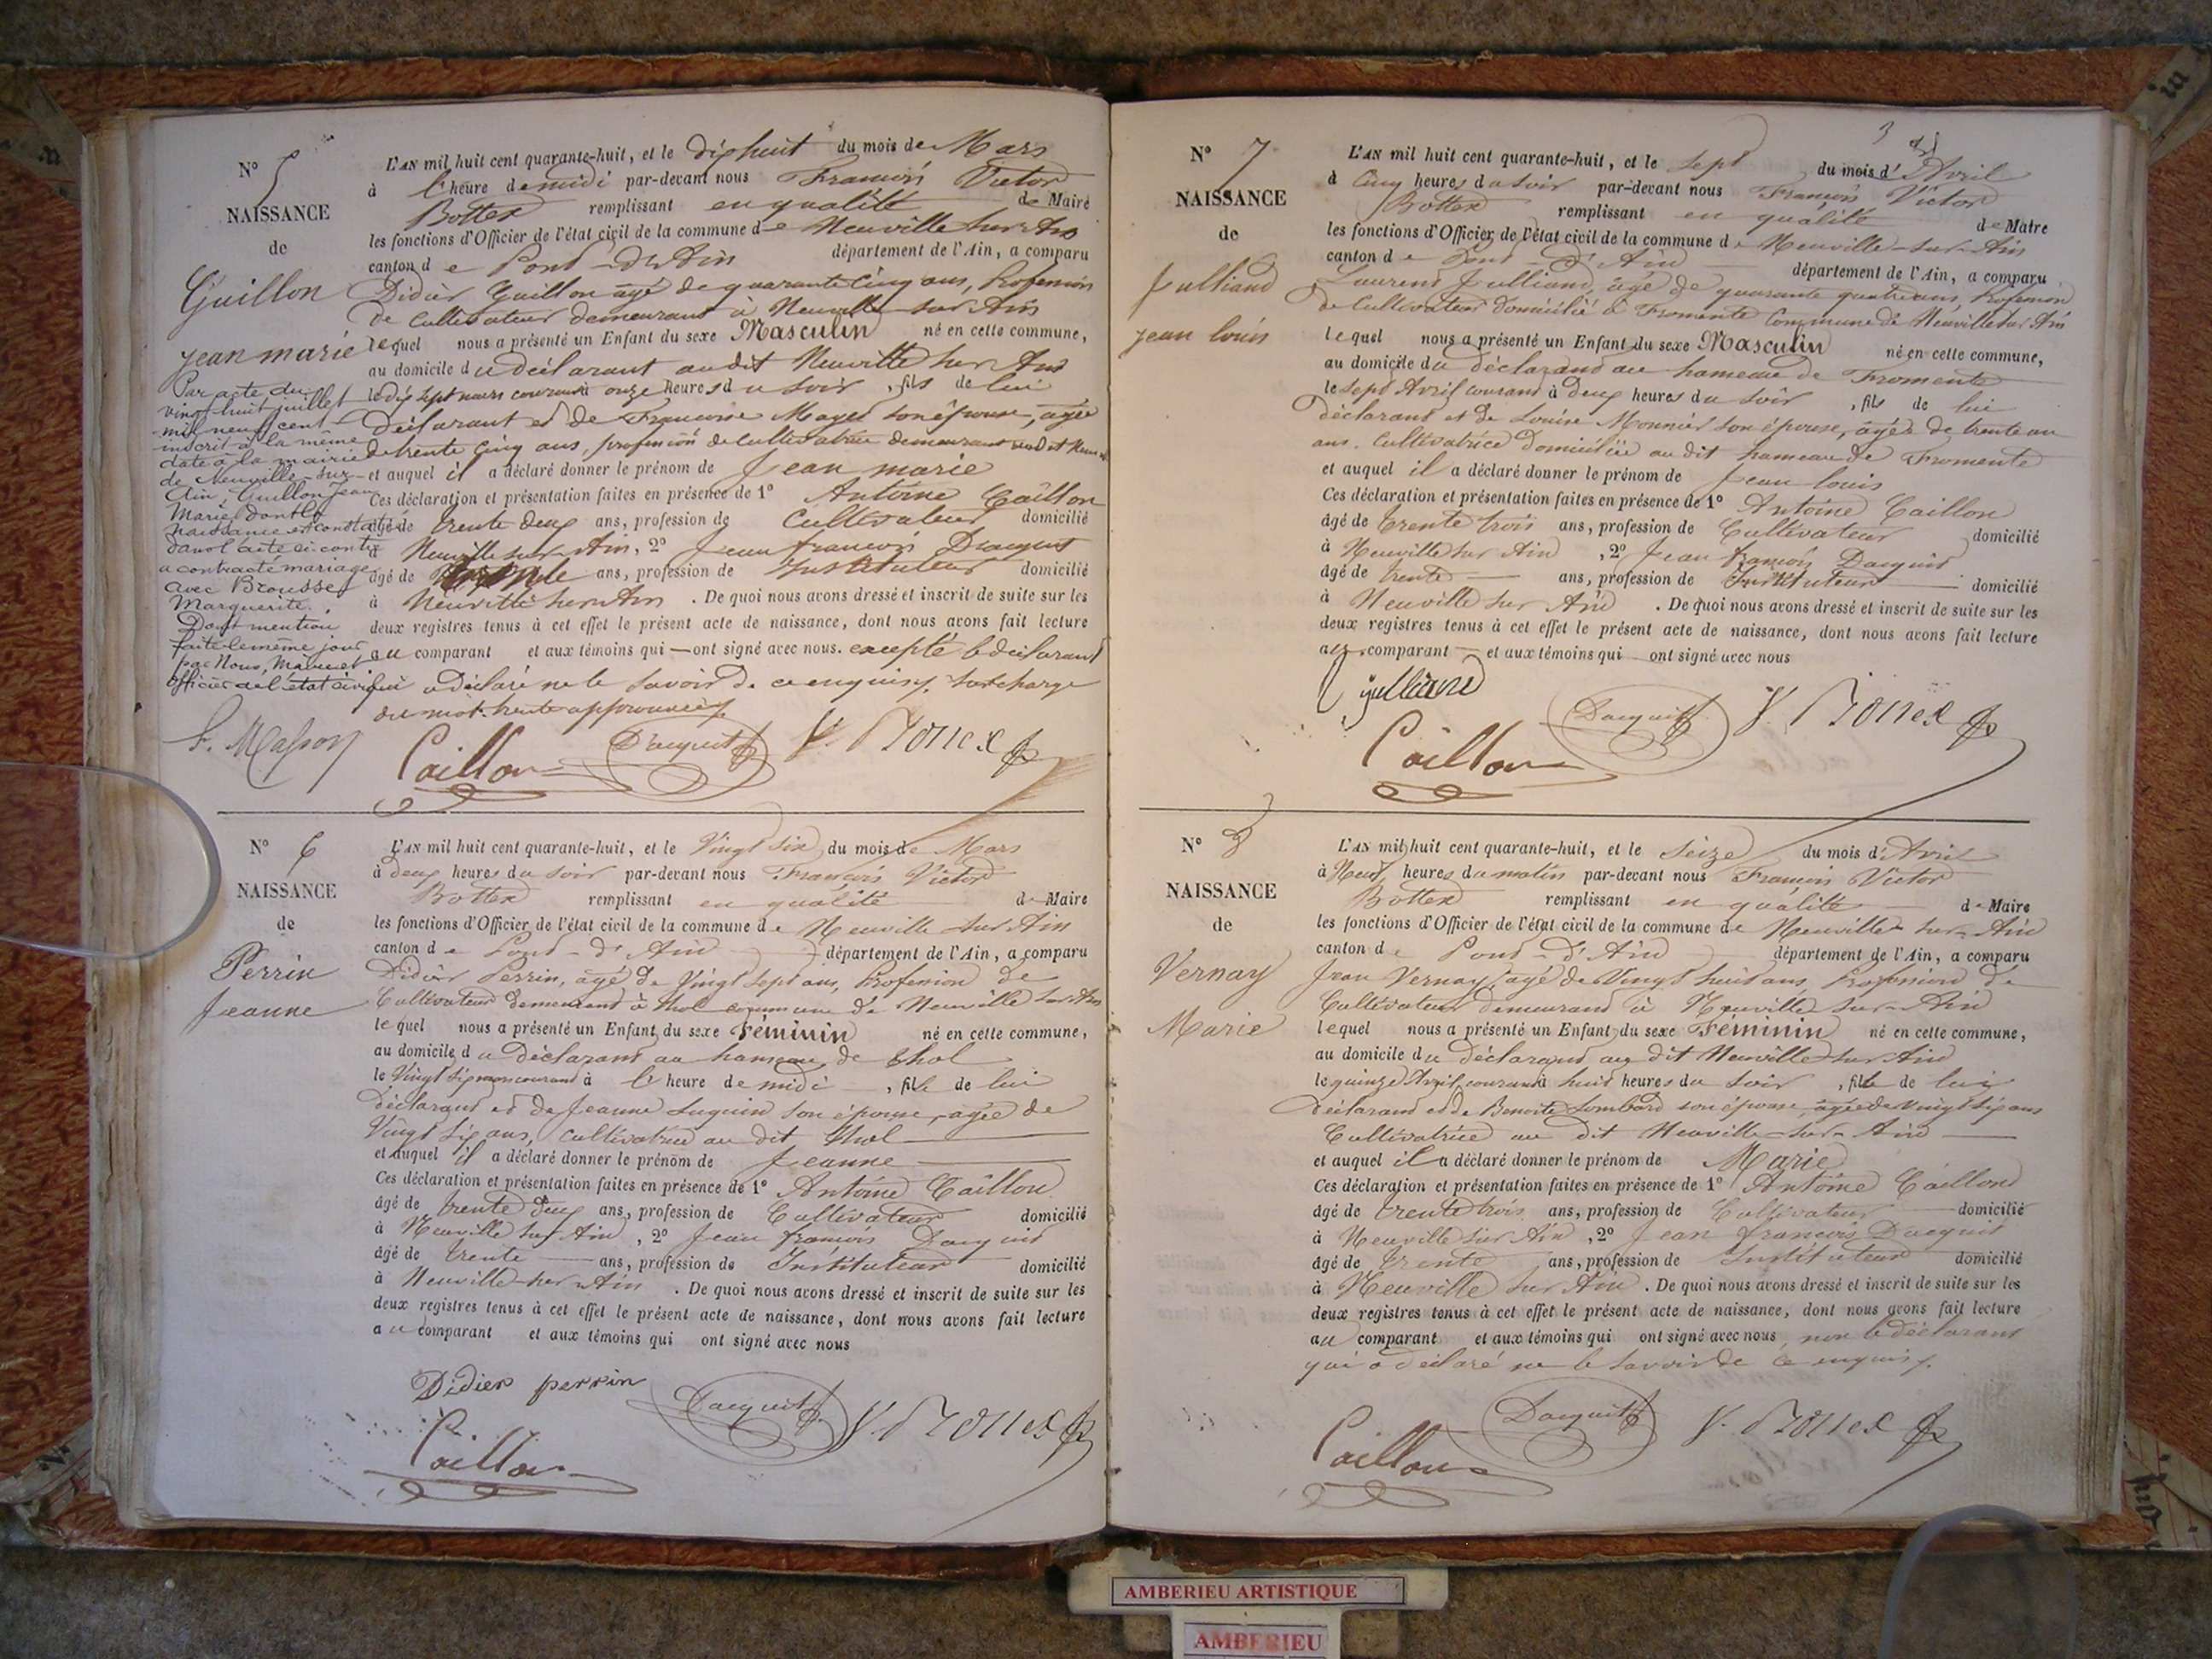 N° 5
NAISSANCE
de
Guillon
jean marie
Par acte du
vingt huit juillet
mil neuf cent
inscrit à la même
date à la mairie
de Neuville-sur-
Ain, Guillon Jean
Marie dont la
naissance est constatée
dans l'acte ci-contre
a contracté mariage
avec Brousse
Marguerite.
Dont mention
faite le même jour
par Nous, Maire et
officier de l'état civil
L'AN mil huit cent quarante-huit, et le dix huit du mois de Mars
à l' heure de midi par-devant nous François Victor
Bottex remplissant en qualité de Maire
les fonctions d'Officier de l'état civil de la commune de Neuville sur Ain
canton de Pont-d'Ain département de l'Ain, a comparu
Didier Guillon âgé de quarante cinq ans, Profession
de Cultivateur demeurant à Neuville sur Ain
lequel nous a présenté un Enfant du sexe Masculin né en cette commune,
au domicile du déclarant au dit Neuville sur Ain
le dix sept mars courant à onze heures du soir, fils de lui
Déclarant et de Françoise Mayet son épouse, âgée
de trente cinq ans, profession de cultivatrice demeurant au dit
et auquel il a déclaré donner le prénom de Jean marie
Ces déclaration et présentation faites en présence de 1° Antoine Caillon
âgé de trente deux ans, profession de Cultivateur domicilié
à Neuville sur Ain, 2° Jean françois Dacquit
âgé de trente ans, profession de Instituteur domicilié
à Neuville sur Ain. De quoi nous avons dressé et inscrit de suite sur les
deux registres tenus à cet effet le présent acte de naissance, dont nous avons fait lecture
au comparant et aux témoins qui — ont signé avec nous. excepté le déclarant
qui a déclaré ne le savoir de ce enquis. surcharge
du mot trente approuvée
Caillon Dacquit V. Bottex
N° 6
NAISSANCE
de
Perrin
Jeanne
L'AN mil huit cent quarante-huit, et le Vingt six du mois de Mars
à deux heures du soir par-devant nous François Victor
Bottex remplissant en qualité de Maire
les fonctions d'Officier de l'état civil de la commune de Neuville sur Ain
canton de Pont-d'Ain département de l'Ain, a comparu
Didier Perrin, âgé de Vingt sept ans, Profession de
Cultivateur demeurant à Thol commune de Neuville sur Ain
lequel nous a présenté un Enfant du sexe Féminin né en cette commune,
au domicile du Déclarant au hameau de Thol
le Vingt six mars courant à l' heure de midi, fille de lui
déclarant et de Jeanne Luguin son épouse, âgée de
Vingt six ans, cultivatrice au dit Thol
et auquel il a déclaré donner le prénom de Jeanne
Ces déclaration et présentation faites en présence de 1° Antoine Caillon
âgé de trente deux ans, profession de Cultivateur domicilié
à Neuville sur Ain, 2° Jean françois Dacquit
âgé de trente ans, profession de Instituteur domicilié
à Neuville sur Ain. De quoi nous avons dressé et inscrit de suite sur les
deux registres tenus à cet effet le présent acte de naissance, dont nous avons fait lecture
au comparant et aux témoins qui ont signé avec nous
Didier perrin
Caillon Dacquit V. Bottex
3
N° 7
NAISSANCE
de
Julliand
jean louis
L'AN mil huit cent quarante-huit, et le sept du mois d'Avril
à Cinq heures du soir par-devant nous François Victor
Bottex remplissant en qualité de Maire
les fonctions d'Officier de l'état civil de la commune de Neuville-sur-Ain
canton de Pont-d'Ain département de l'Ain, a comparu
Laurent Julliand, âgé de quarante quatre ans, Profession
de Cultivateur domicilié à Fromente Commune de Neuville sur Ain
lequel nous a présenté un Enfant du sexe Masculin né en cette commune,
au domicile du déclarant au hameau de Fromente
le sept Avril courant à Deux heures du Soir, fils de lui
déclarant et de Louise Monnier son épouse, âgée de trente un
ans. Cultivatrice domiciliée au dit hameau de Fromente
et auquel il a déclaré donner le prénom de Jean louis
Ces déclaration et présentation faites en présence de 1° Antoine Caillon
âgé de trente trois ans, profession de Cultivateur domicilié
à Neuville sur Ain, 2° Jean françois Dacquit
âgé de trente ans, profession de Instituteur domicilié
à Neuville sur Ain. De quoi nous avons dressé et inscrit de suite sur les
deux registres tenus à cet effet le présent acte de naissance, dont nous avons fait lecture
au comparant — et aux témoins qui ont signé avec nous
julliand
Caillon Dacquit V. Bottex
N° 8
NAISSANCE
de
Vernay
Marie
L'AN mil huit cent quarante-huit, et le Seize du mois d'Avril
à Neuf heures du matin par-devant nous François Victor
Bottex remplissant en qualité de Maire
les fonctions d'Officier de l'état civil de la commune de Neuville sur-Ain
canton de Pont-d'Ain département de l'Ain, a comparu
Jean Vernay, âgé de Vingt huit ans, Profession de
Cultivateur demeurant à Neuville sur-Ain
lequel nous a présenté un Enfant du sexe Féminin né en cette commune,
au domicile du déclarant au dit Neuville sur Ain
le quinze Avril courant à huit heures du Soir, fille de lui
déclarant et de Benoite Lombard son épouse, âgée de vingt six ans
Cultivatrice au dit Neuville-sur-Ain
et auquel il a déclaré donner le prénom de Marie
Ces déclaration et présentation faites en présence de 1° Antoine Caillon
âgé de trente trois ans, profession de Cultivateur domicilié
à Neuville sur Ain, 2° Jean françois Dacquit
âgé de trente ans, profession de Instituteur domicilié
à Neuville sur Ain. De quoi nous avons dressé et inscrit de suite sur les
deux registres tenus à cet effet le présent acte de naissance, dont nous avons fait lecture
au comparant et aux témoins qui ont signé avec nous, non le déclarant
qui a déclaré ne le savoir de ce enquis.
Caillon Dacquit V. Bottex
AMBERIEU ARTISTIQUE
AMBERIEU